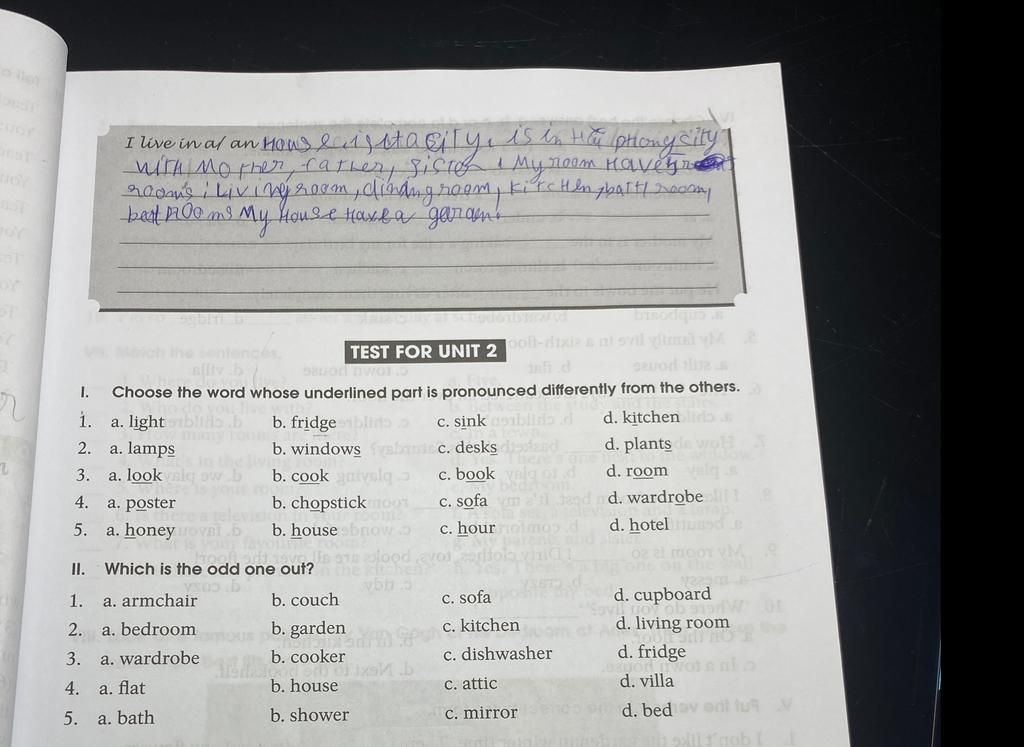 I live in a/ an House. is it a city. is in Hải phong city
with Mother, father, sister . My room Have
room's : Living room, dinding room, kitchen, bath room,
My House Have a garden.
TEST FOR UNIT 2
I. Choose the word whose underlined part is pronounced differently from the others.
1. a. light b. fridge c. sink d. kitchen
2. a. lamps b. windows c. desks d. plants
3. a. look b. cook c. book d. room
4. a. poster b. chopstick c. sofa d. wardrobe
5. a. honey b. house c. hour d. hotel
II. Which is the odd one out?
1. a. armchair b. couch c. sofa d. cupboard
2. a. bedroom b. garden c. kitchen d. living room
3. a. wardrobe b. cooker c. dishwasher d. fridge
4. a. flat b. house c. attic d. villa
5. a. bath b. shower c. mirror d. bed